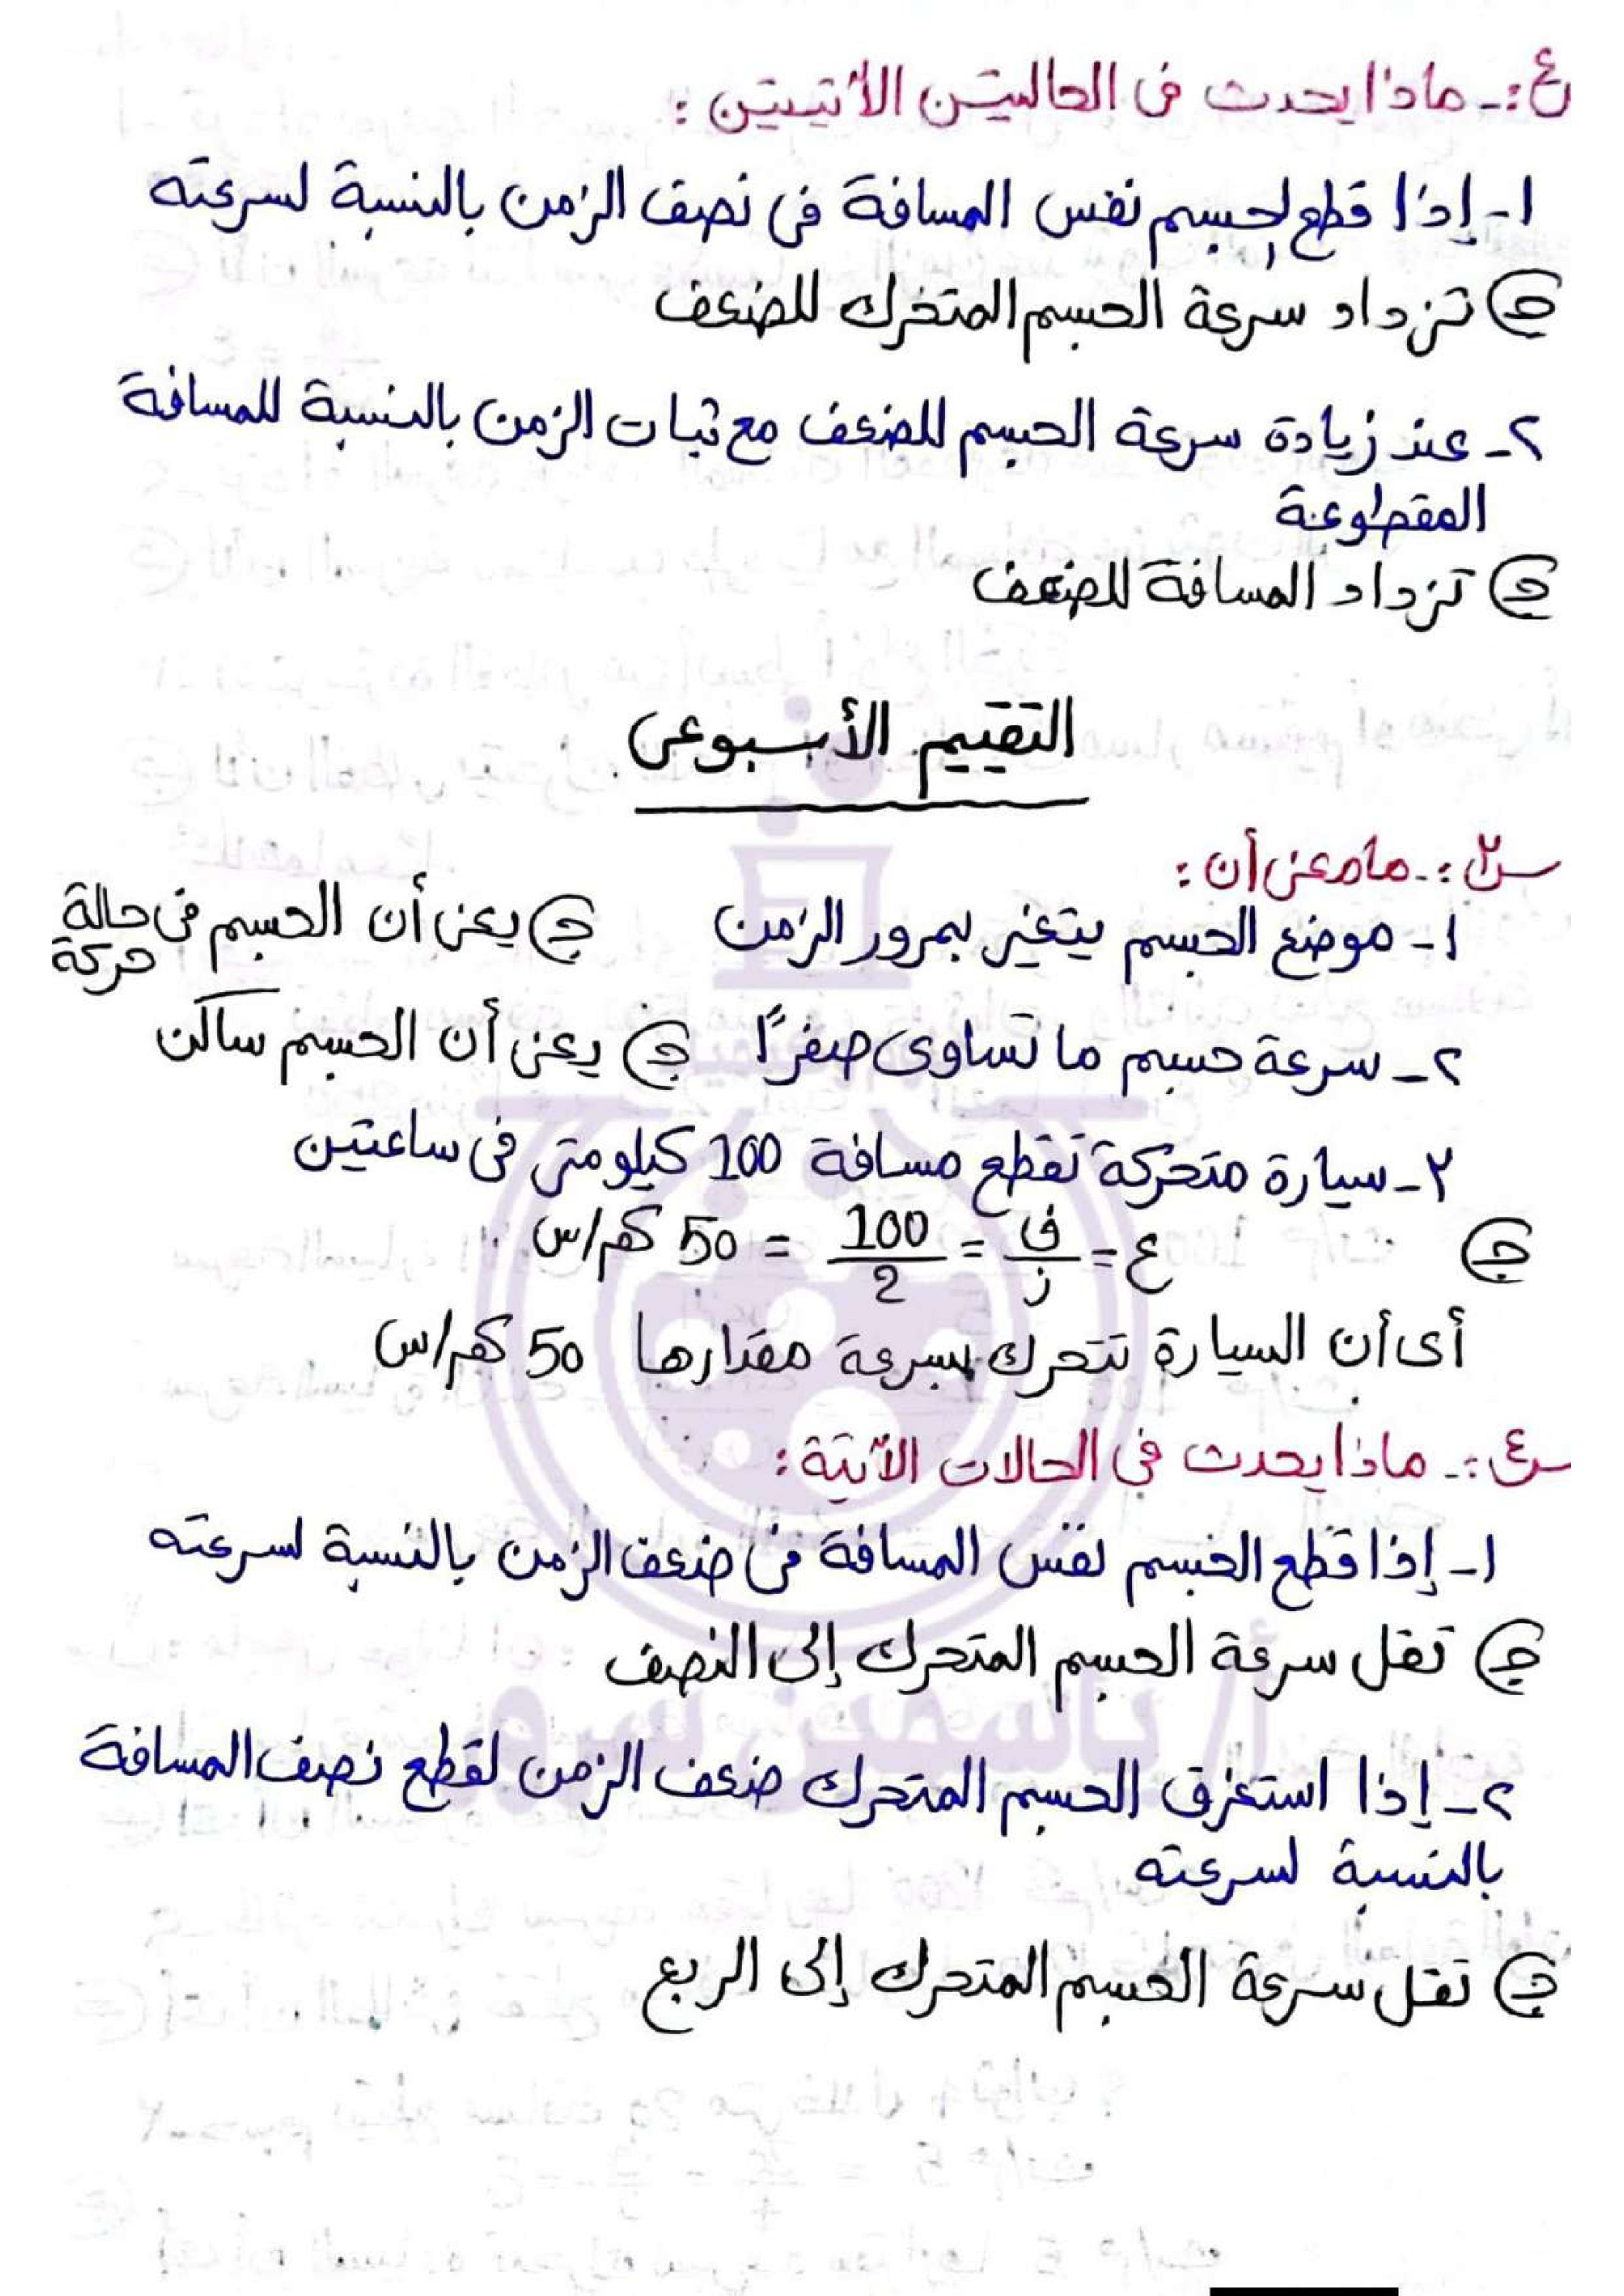 س٤:- ماذا يحدث فى الحاليتن الأتيتين :
١- إذا قطع الجسم نفس المسافة فى نصف الزمن بالنسبة لسرعته
ج تزداد سرعة الجسم المتحرك للضعف
٢- عند زيادة سرعة الجسم للضعف مع ثبات الزمن بالنسبة للمسافة
المقطوعة
ج تزداد المسافة للضعف
التقييم الأسبوعى
س٣:- ما معنى أن :
١- موضع الجسم يتغير بمرور الزمن ج يعنى أن الجسم فى حالة
حركة
٢- سرعة جسم ما تساوى صفرًا ج يعنى أن الجسم ساكن
٣- سيارة متحركة تقطع مسافة 100 كيلومتر فى ساعتين
ج ع = ف/ز = 100/2 = 50 كم/س
أى أن السيارة تتحرك بسرعة مقدارها 50 كم/س
س٤:- ماذا يحدث فى الحالات الآتية :
١- إذا قطع الجسم نفس المسافة فى ضعف الزمن بالنسبة لسرعته
ج تقل سرعة الجسم المتحرك إلى النصف
٢- إذا استغرق الجسم المتحرك ضعف الزمن لقطع نصف المسافة
بالنسبة لسرعته
ج تقل سرعة الجسم المتحرك إلى الربع